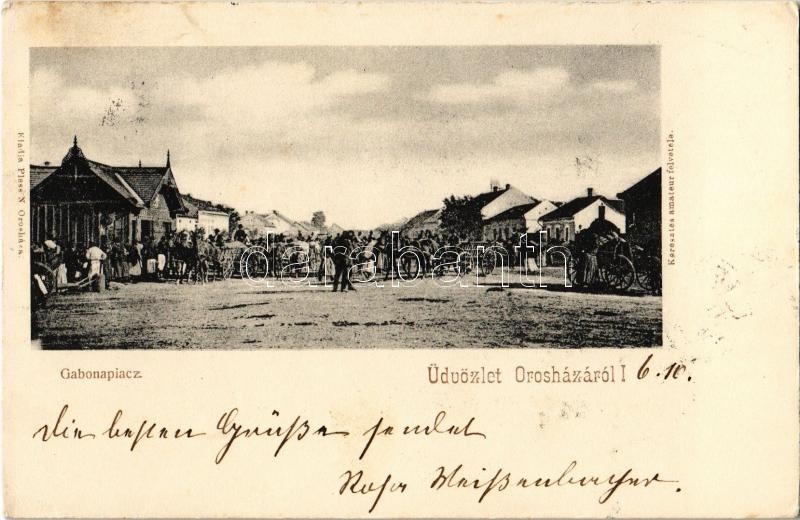 Kiadja Pless N. Orosháza.
Keresztes amateur felvétele.
darabanth
Gabonapiacz.
Üdvözlet Orosházáról I 6.10.
Die besten Grüße sendet
Rosa Weißenbacher.